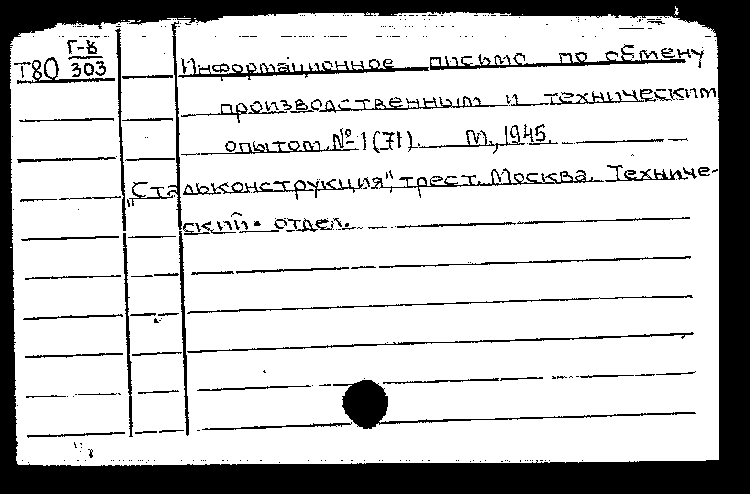 Г-8
Т80 303
Информационное письмо по обмену
производственным и техническим
опытом. №1(71). М., 1945.
"Стальконструкция", трест. Москва. Техниче-
ский отдел.